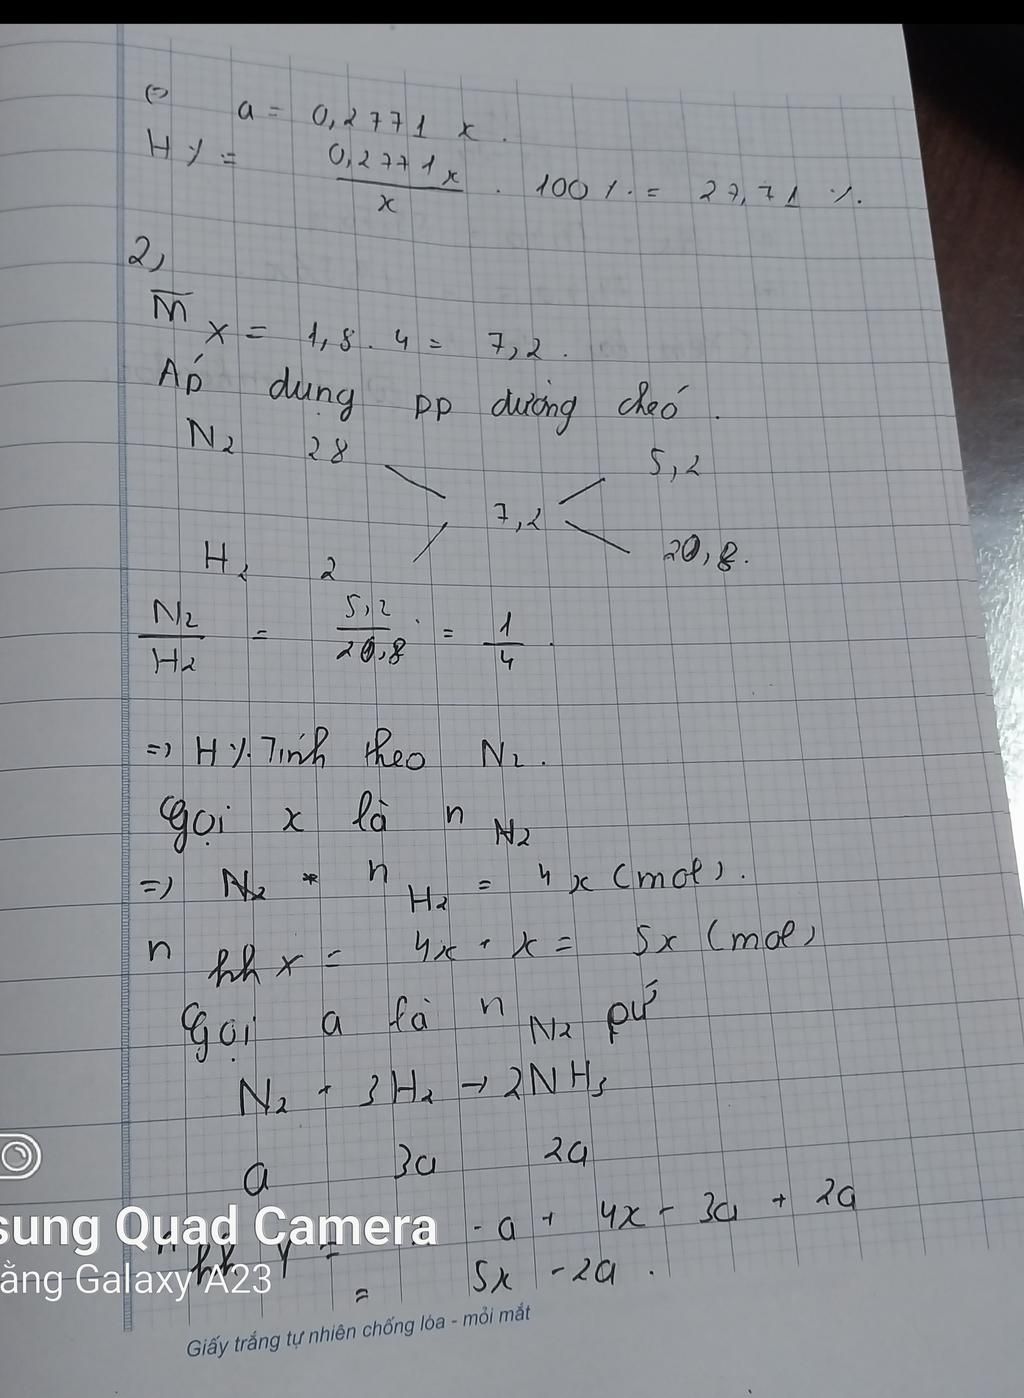 ⇔ a = 0,2771 x.
H% = 0,2771x / x . 100% = 27,71 %.
2,
M̅ X = 1,8 . 4 = 7,2.
Áp dụng pp đường chéo.
N2 28 5,2
7,2
H2 2 20,8.
N2 / H2 = 5,2 / 20,8 = 1 / 4.
=> H% Tính theo N2.
Gọi x là n N2
=> n H2 = 4x (mol).
n hh x = 4x + x = 5x (mol)
Gọi a là n N2 pứ
N2 + 3H2 → 2NH3
a 3a 2a
sung Quad Camera
n hh Y = - a + 4x - 3a + 2a
ằng Galaxy A23
= 5x - 2a.
Giấy trắng tự nhiên chống lóa - mỏi mắt